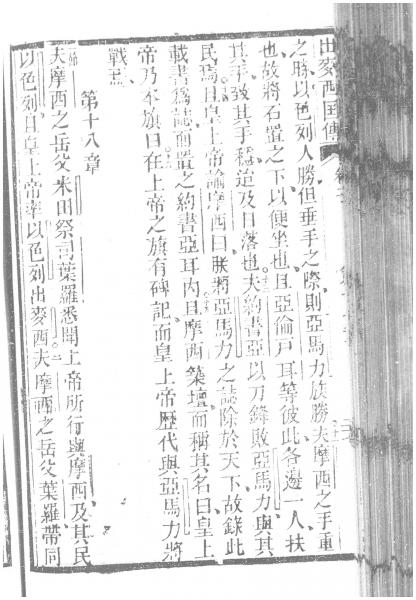 出麥西国傳
之時以色列人勝但垂手之際則亞馬力族勝夫摩西之手重
也故將石置之下以便坐也且亞倫戶耳等彼此各邊一人扶
其手致其手穩迨及日落也夫約書亞以刀鋒敗亞馬力與其
民焉且皇上帝諭摩西曰朕將亞馬力之誌除於天下故錄此
載書爲誌而置之約書亞耳內且摩西築壇而稱其名曰皇上
帝乃本旗曰在上帝之旗有碑記而皇上帝歷代與亞馬力將
戰焉
第十八章
夫摩西之岳父米田祭司葉羅悉聞上帝所行與摩西及其民
以色列且皇上帝率以色列出麥西夫摩西之岳父葉羅帶同